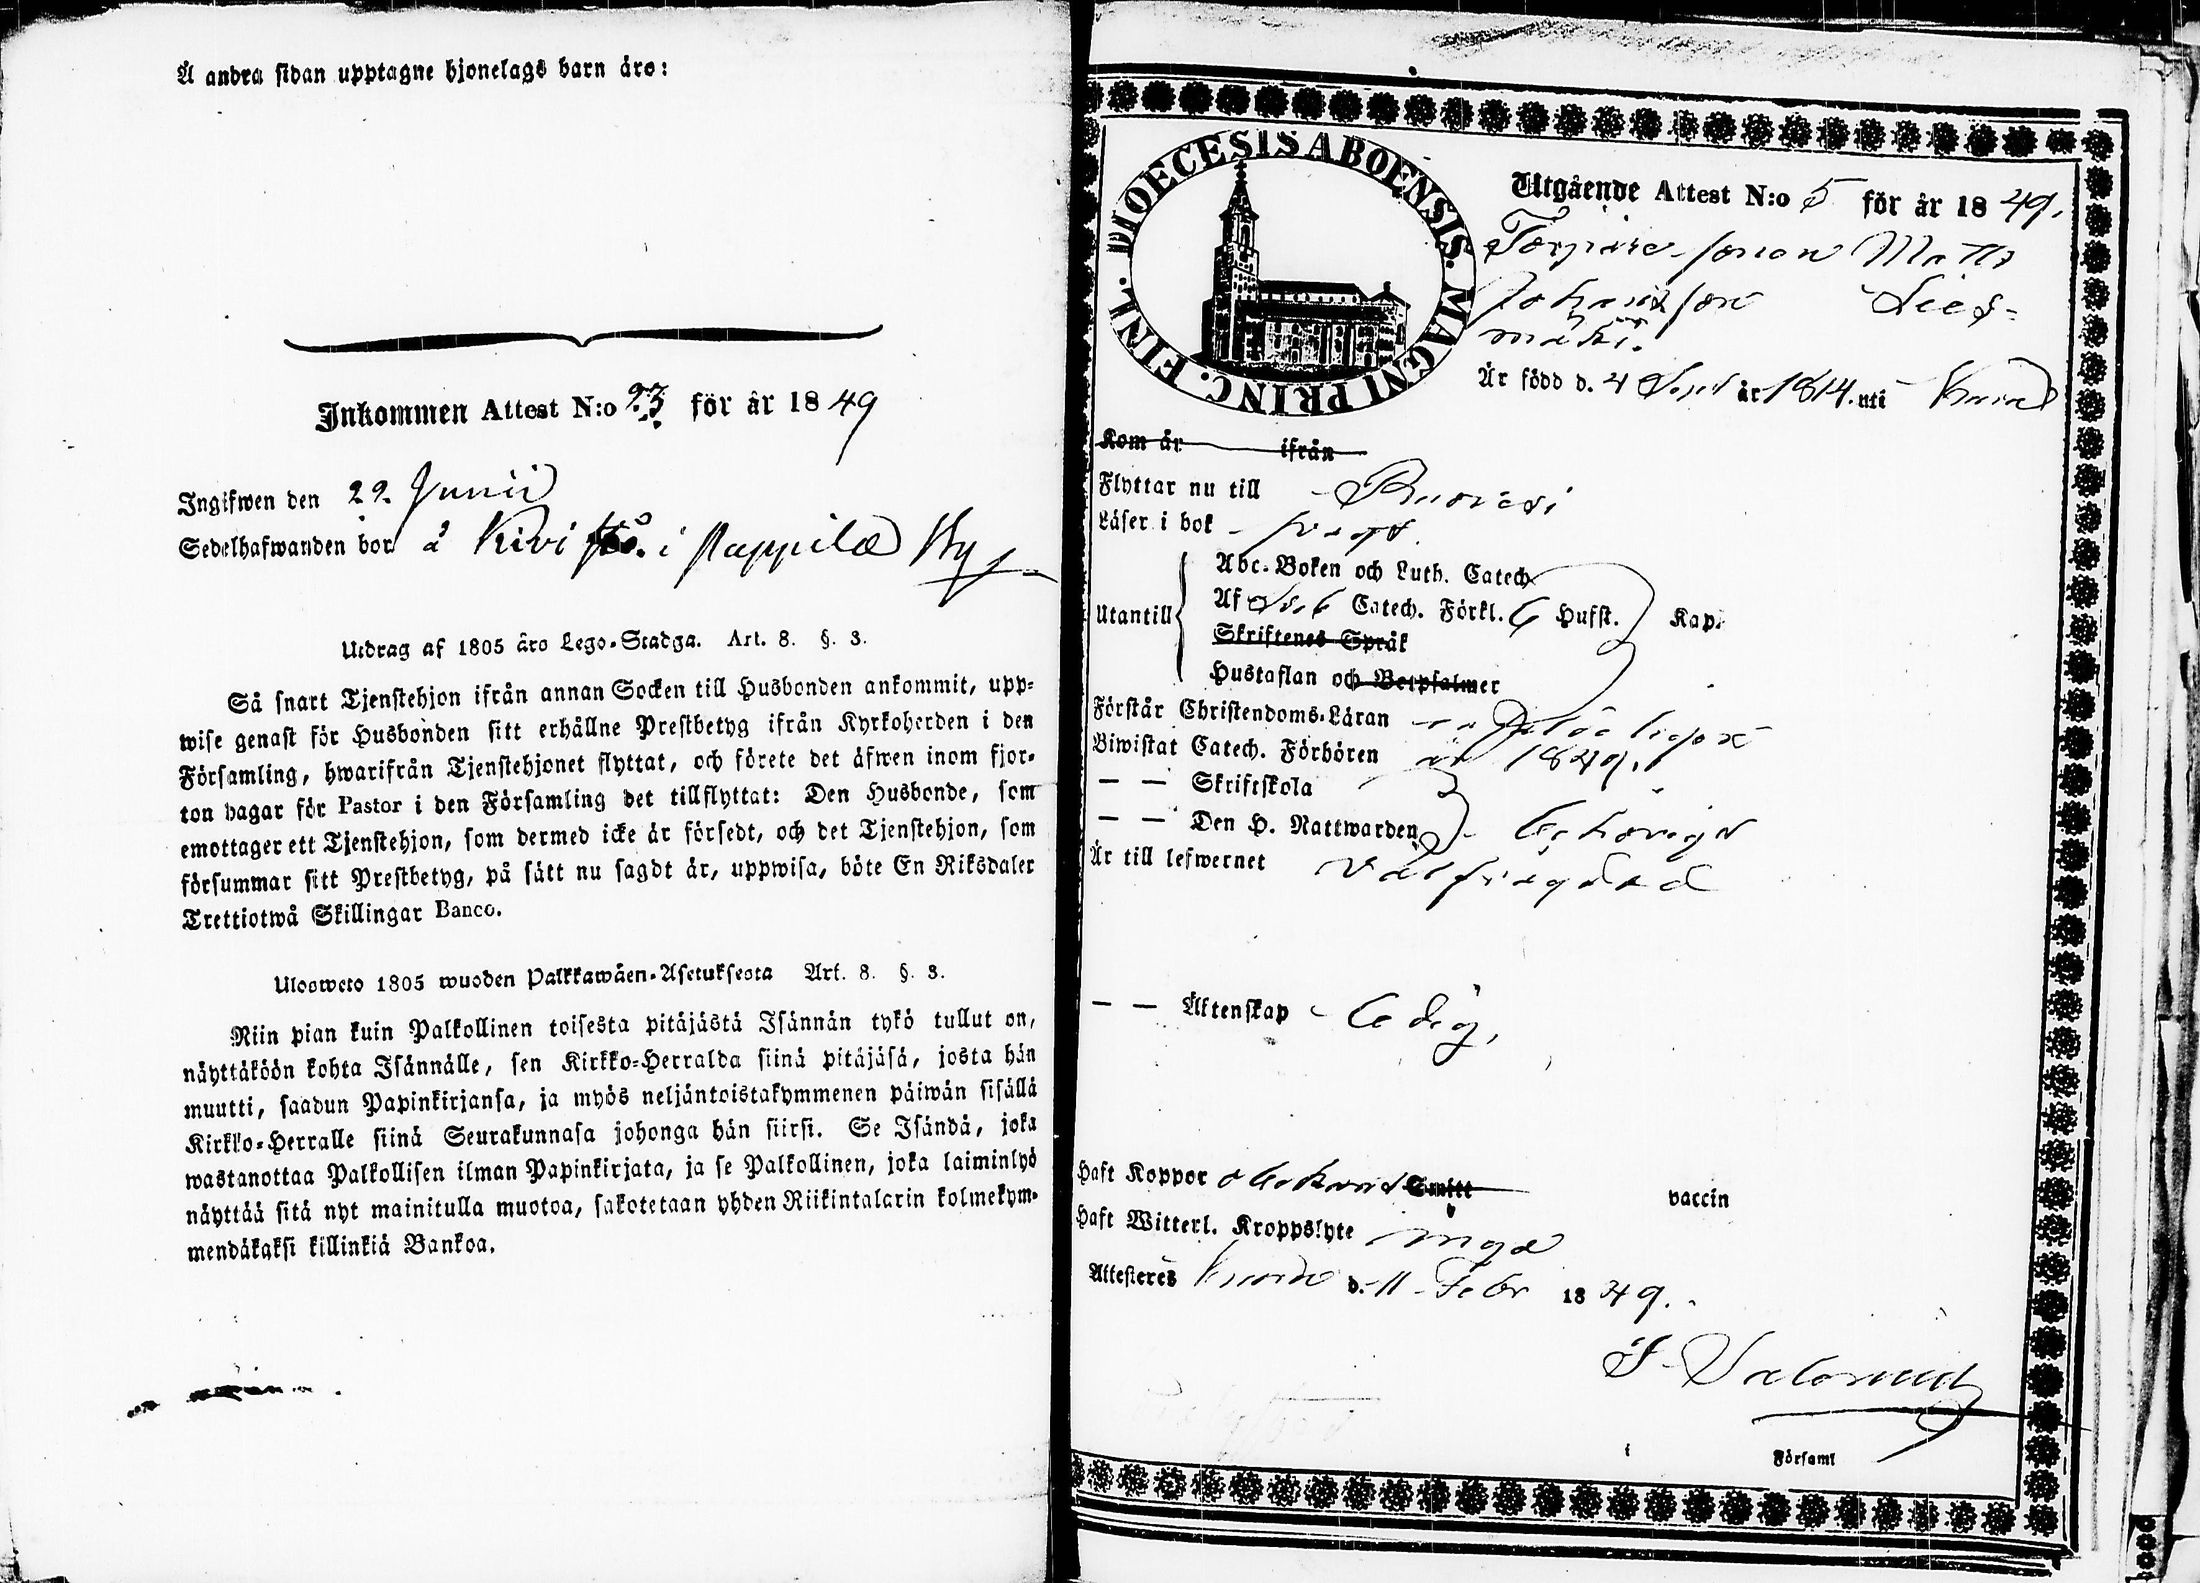 Å andra sidan upptagne hjonelags barn äro:
Inkommen Attest N:o 23. för år 1849
Ingifwen den 29. Junii
Sedelhafwanden bor å Kivi i Pappila By
Utdrag af 1805 års Lego-Stadga. Art. 8. §. 3.
Så snart Tjenstehjon ifrån annan Socken till Husbonden ankommit, upp-
wise genast för Husbonden sitt erhållne Prestbetyg ifrån Kyrkoherden i den
Församling, hwarifrån Tjenstehjonet flyttat, och förete det äfwen inom fjor-
ton dagar för Pastor i den Församling det tillflyttat: Den Husbonde, som
emottager ett Tjenstehjon, som dermed icke är försedt, och det Tjenstehjon, som
försummar sitt Prestbetyg, på sätt nu sagdt är, uppwisa, böte En Riksdaler
Trettiotwå Skillingar Banco.
Ulosweto 1805 wuoden Palkkawäen-Asetuksesta Art. 8. §. 3.
Niin pian kuin Palkollinen toisesta pitäjästä Isännän tykö tullut on,
näyttäköön kohta Isännälle, sen Kirkko-Herralda siinä pitäjäsä, josta hän
muutti, saadun Papinkirjansa, ja myös neljäntoistakymmenen päiwän sisällä
Kirkko-Herralle siinä Seurakunnasa johonga hän siirsi. Se Isändä, joka
wastanottaa Palkollisen ilman Papinkirjata, ja se Palkollinen, joka laiminlyö
näyttää sitä nyt mainitulla muotoa, sakotetaan yhden Riikintalarin kolmekym-
mendäkaksi killinkiä Bankoa.
DIOECESIS ABOENSIS. MAGNI PRINC. FINL.
Utgående Attest N:o 5 för år 1849.
Torpare-sonen Matts
Johansson Lies-
mäki.
Är född d. 4 Sept år 1814. uti Kuru
Kom år ifrån
Flyttar nu till Ruovesi
Läser i bok svagt
Abc-Boken och Luth. Catech
Utantill Af Catech. Förkl. 6 Hufst. Kap.
Skriftenes Språk
Hustaflan och Botpsalmer
Förstår Christendoms-Läran
Biwistat Catech. Förhören år 1849.
— — Skriftskola
— — Den H. Nattwarden behörigt
Är till lefwernet välfrägdad
— — Äktenskap ledig,
Haft Koppor obekant Smitt vaccin
Haft Witterl. Kroppslyte inga
Attesteras Kuru d. 11 Febr 1849.
i Församl